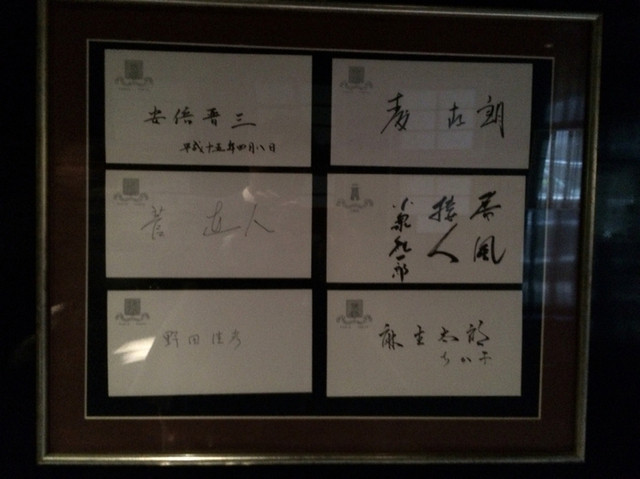 安倍晋三
平成十五年四月八日
菅 直人
春風
接人
小泉純一郎
野田佳彦
麻生太郎
ちか子